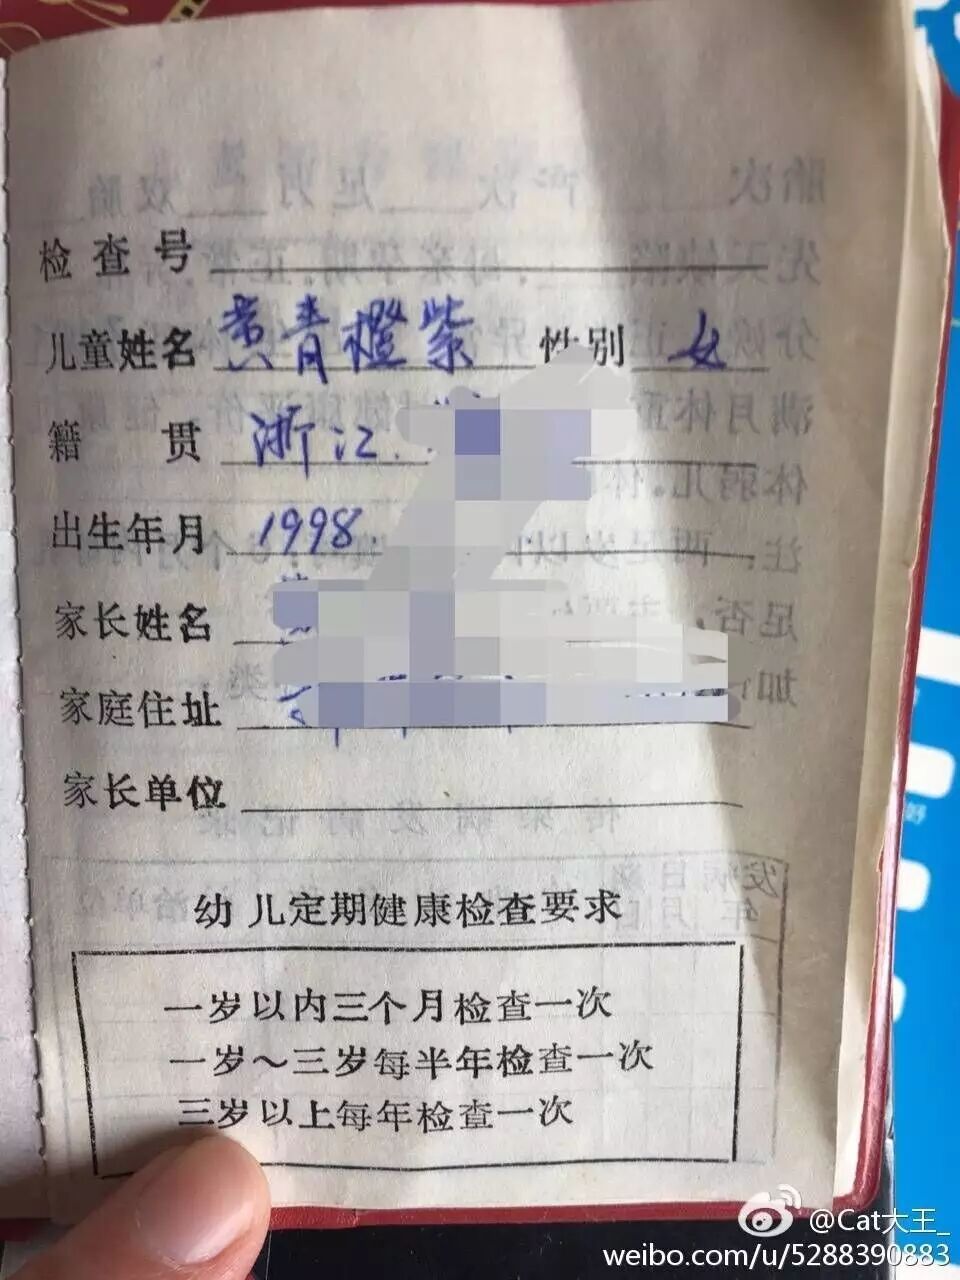 检查号
儿童姓名 黄青橙紫 性别 女
籍贯 浙江
出生年月 1998
家长姓名
家庭住址
家长单位
幼儿定期健康检查要求
一岁以内三个月检查一次
一岁～三岁每半年检查一次
三岁以上每年检查一次
@Cat大王_
weibo.com/u/5288390883